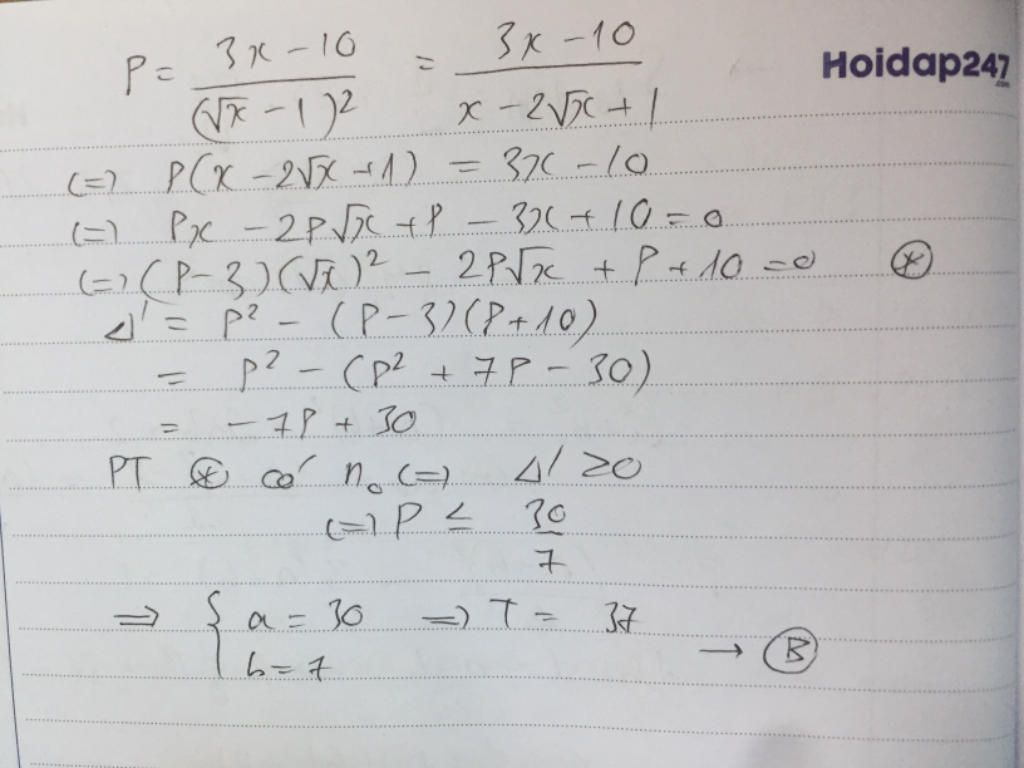 P = \frac{3x - 10}{(\sqrt{x} - 1)^2} = \frac{3x - 10}{x - 2\sqrt{x} + 1}
Hoidap247.com
(=) P(x - 2√x + 1) = 3x - 10
(=) Px - 2P√x + P - 3x + 10 = 0
(=) (P - 3)(√x)² - 2P√x + P + 10 = 0 ⊛
Δ' = P² - (P - 3)(P + 10)
= P² - (P² + 7P - 30)
= - 7P + 30
PT ⊛ có n₀ (=) Δ' ≥ 0
(=) P ≤ \frac{30}{7}
=> { a = 30 => T = 37
b = 7 → Ⓑ